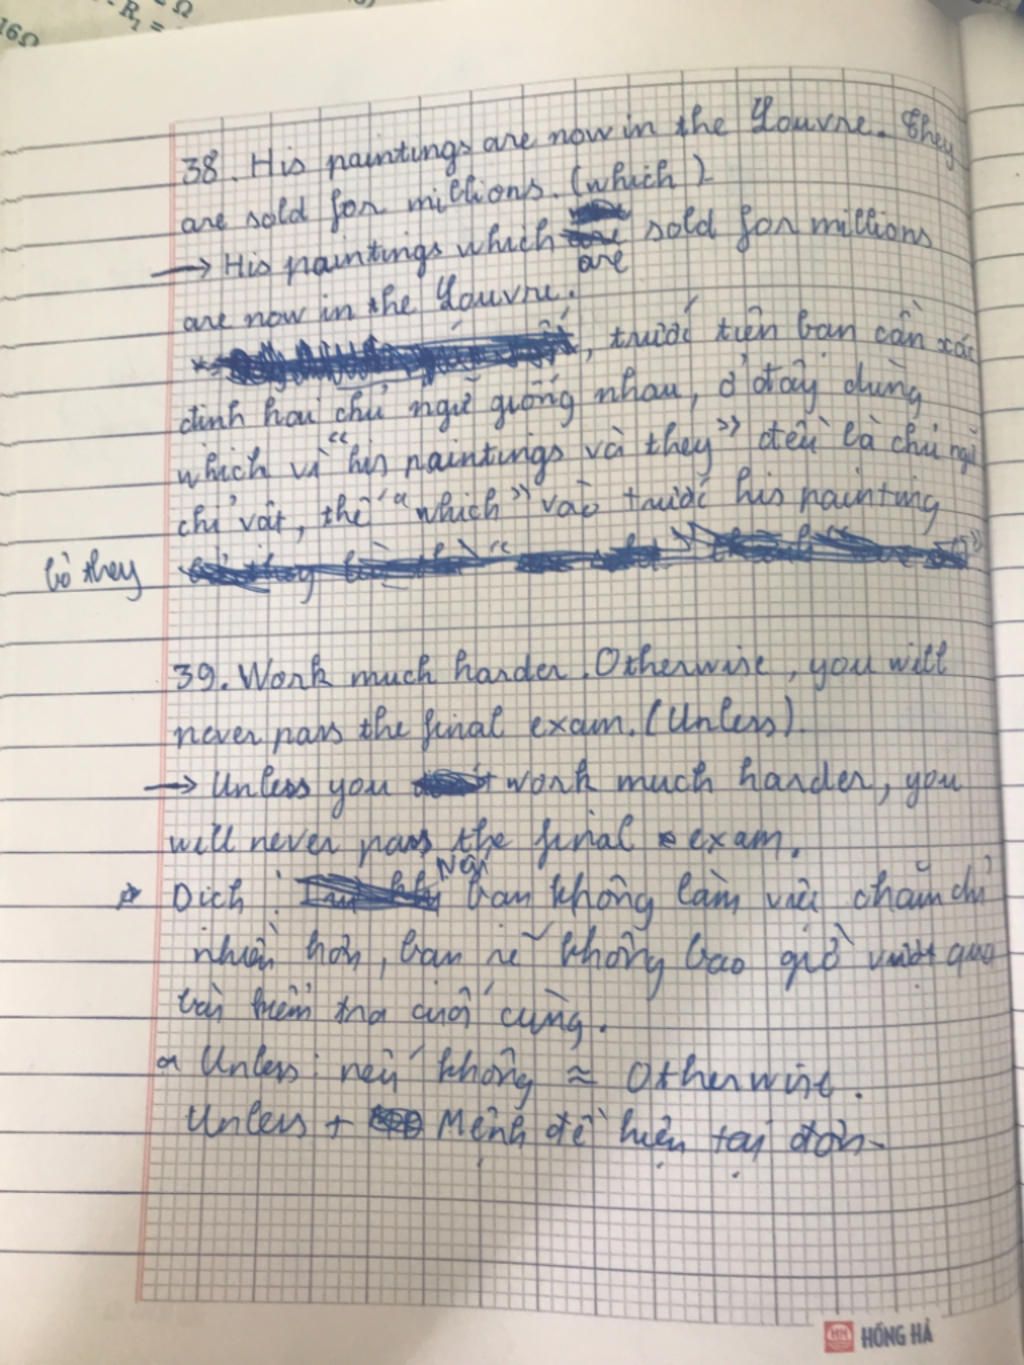 16Ω
- R₁ =
Ω
38. His paintings are now in the Louvre. They
are sold for millions. (which)
→ His paintings which are sold for millions
are now in the Louvre.
, trước tiên bạn cần xác
định hai chủ ngữ giống nhau, ở đây dùng
which vì "his paintings và they" đều là chủ ngữ
chỉ vật, thế "which" vào trước his painting
bỏ they
39. Work much harder. Otherwise, you will
never pass the final exam. (Unless).
→ Unless you work much harder, you
will never pass the final exam.
Dịch: bạn không làm việc chăm chỉ
nhiều hơn, bạn sẽ không bao giờ vượt qua
bài kiểm tra cuối cùng.
Unless: nếu không ≈ Otherwise.
Unless + Mệnh đề hiện tại đơn.
HH HỒNG HÀ